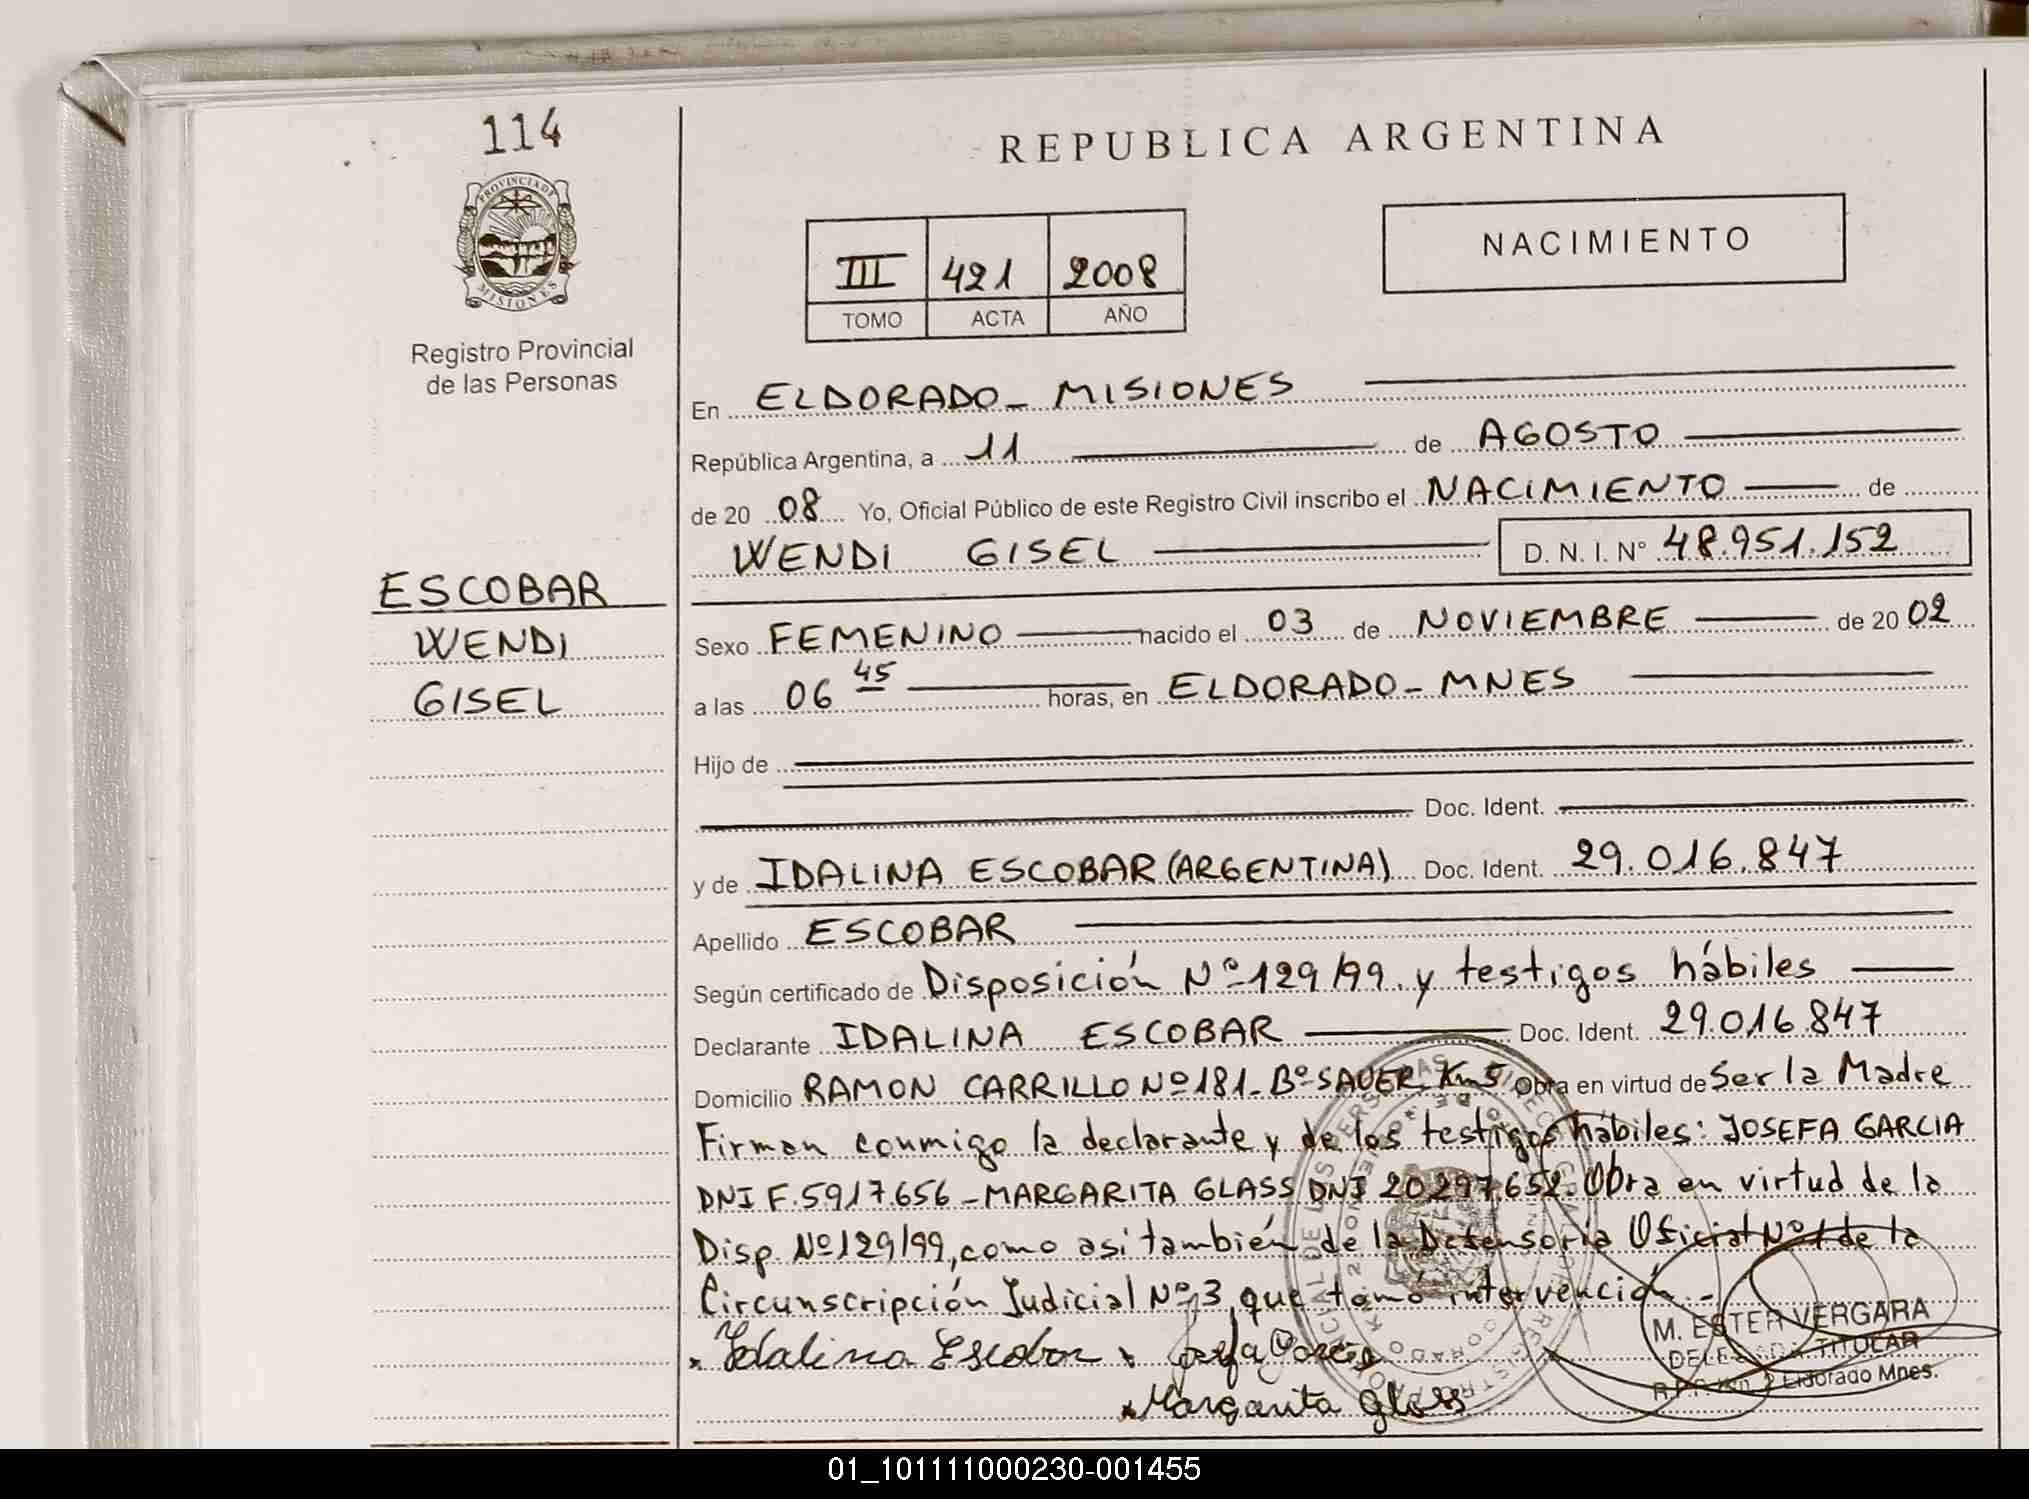 114
PROVINCIA DE
MISIONES
Registro Provincial
de las Personas
ESCOBAR
WENDI
GISEL
REPUBLICA ARGENTINA
NACIMIENTO
III 421 2008
TOMO ACTA AÑO
En ELDORADO - MISIONES
República Argentina, a 11 de AGOSTO
de 20 08 Yo, Oficial Público de este Registro Civil inscribo el NACIMIENTO de
WENDI GISEL D. N. I. N° 48.951.152
Sexo FEMENINO nacido el 03 de NOVIEMBRE de 20 02
a las 06 45 horas, en ELDORADO - MNES
Hijo de
Doc. Ident.
y de IDALINA ESCOBAR (ARGENTINA) Doc. Ident. 29.016.847
Apellido ESCOBAR
Según certificado de Disposición Nº 129/99. y testigos hábiles
Declarante IDALINA ESCOBAR Doc. Ident. 29.016.847
Domicilio RAMON CARRILLO Nº 181 - Bº SAUER Km 5 Obra en virtud de Ser la Madre
Firman conmigo la declarante y de los testigos hábiles: JOSEFA GARCIA
DNI F. 5917.656 - MARGARITA GLASS DNI 20297652. Obra en virtud de la
Disp. Nº 129/99, como asi también de la Defensoria Oficial Nº 1 de la
Circunscripción Judicial Nº 3, que tomó intervención.-
Idalina Escobar
Margarita Glass
M. ESTER VERGARA
DELEGADA TITULAR
R.P.P. Km. 2 Eldorado Mnes.
01_101111000230-001455